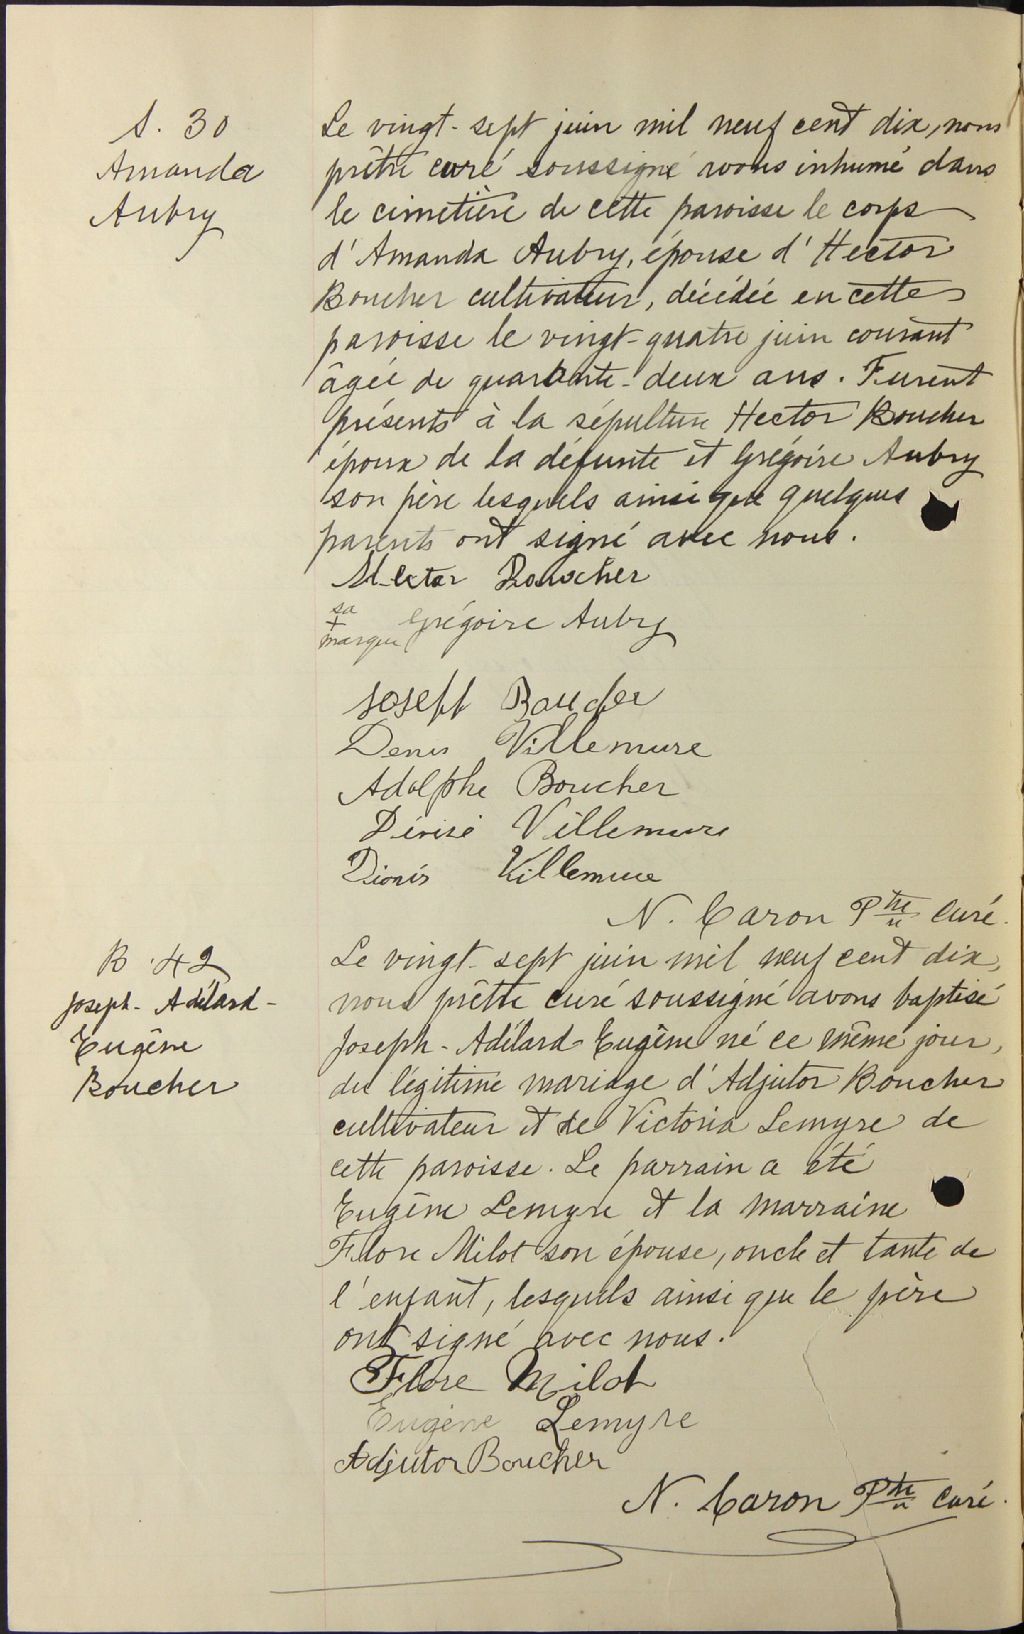 S. 30
Amanda
Aubry
Le vingt-sept juin mil neuf cent dix, nous
prêtre curé soussigné avons inhumé dans
le cimetière de cette paroisse le corps
d'Amanda Aubry, épouse d'Hector
Boucher cultivateur, décédée en cette
paroisse le vingt-quatre juin courant
âgée de quarante-deux ans. Furent
présents à la sépulture Hector Boucher
époux de la défunte et Grégoire Aubry
son père lesquels ainsi que quelques
parents ont signé avec nous.
Hector Boucher
sa
+
marque Grégoire Aubry
Joseph Boucher
Denis Villemure
Adolphe Boucher
Dérisé Villemure
Dionis Villemure
N. Caron Ptre curé.
B. 42
Joseph-Adélard-
Eugène
Boucher
Le vingt-sept juin mil neuf cent dix,
nous prêtre curé soussigné avons baptisé
Joseph-Adélard-Eugène né ce même jour,
du légitime mariage d'Adjutor Boucher
cultivateur et de Victoria Lemyre de
cette paroisse. Le parrain a été
Eugène Lemyre et la marraine
Flore Milot son épouse, oncle et tante de
l'enfant, lesquels ainsi que le père
ont signé avec nous.
Flore Milot
Eugène Lemyre
Adjutor Boucher
N. Caron Ptre curé.